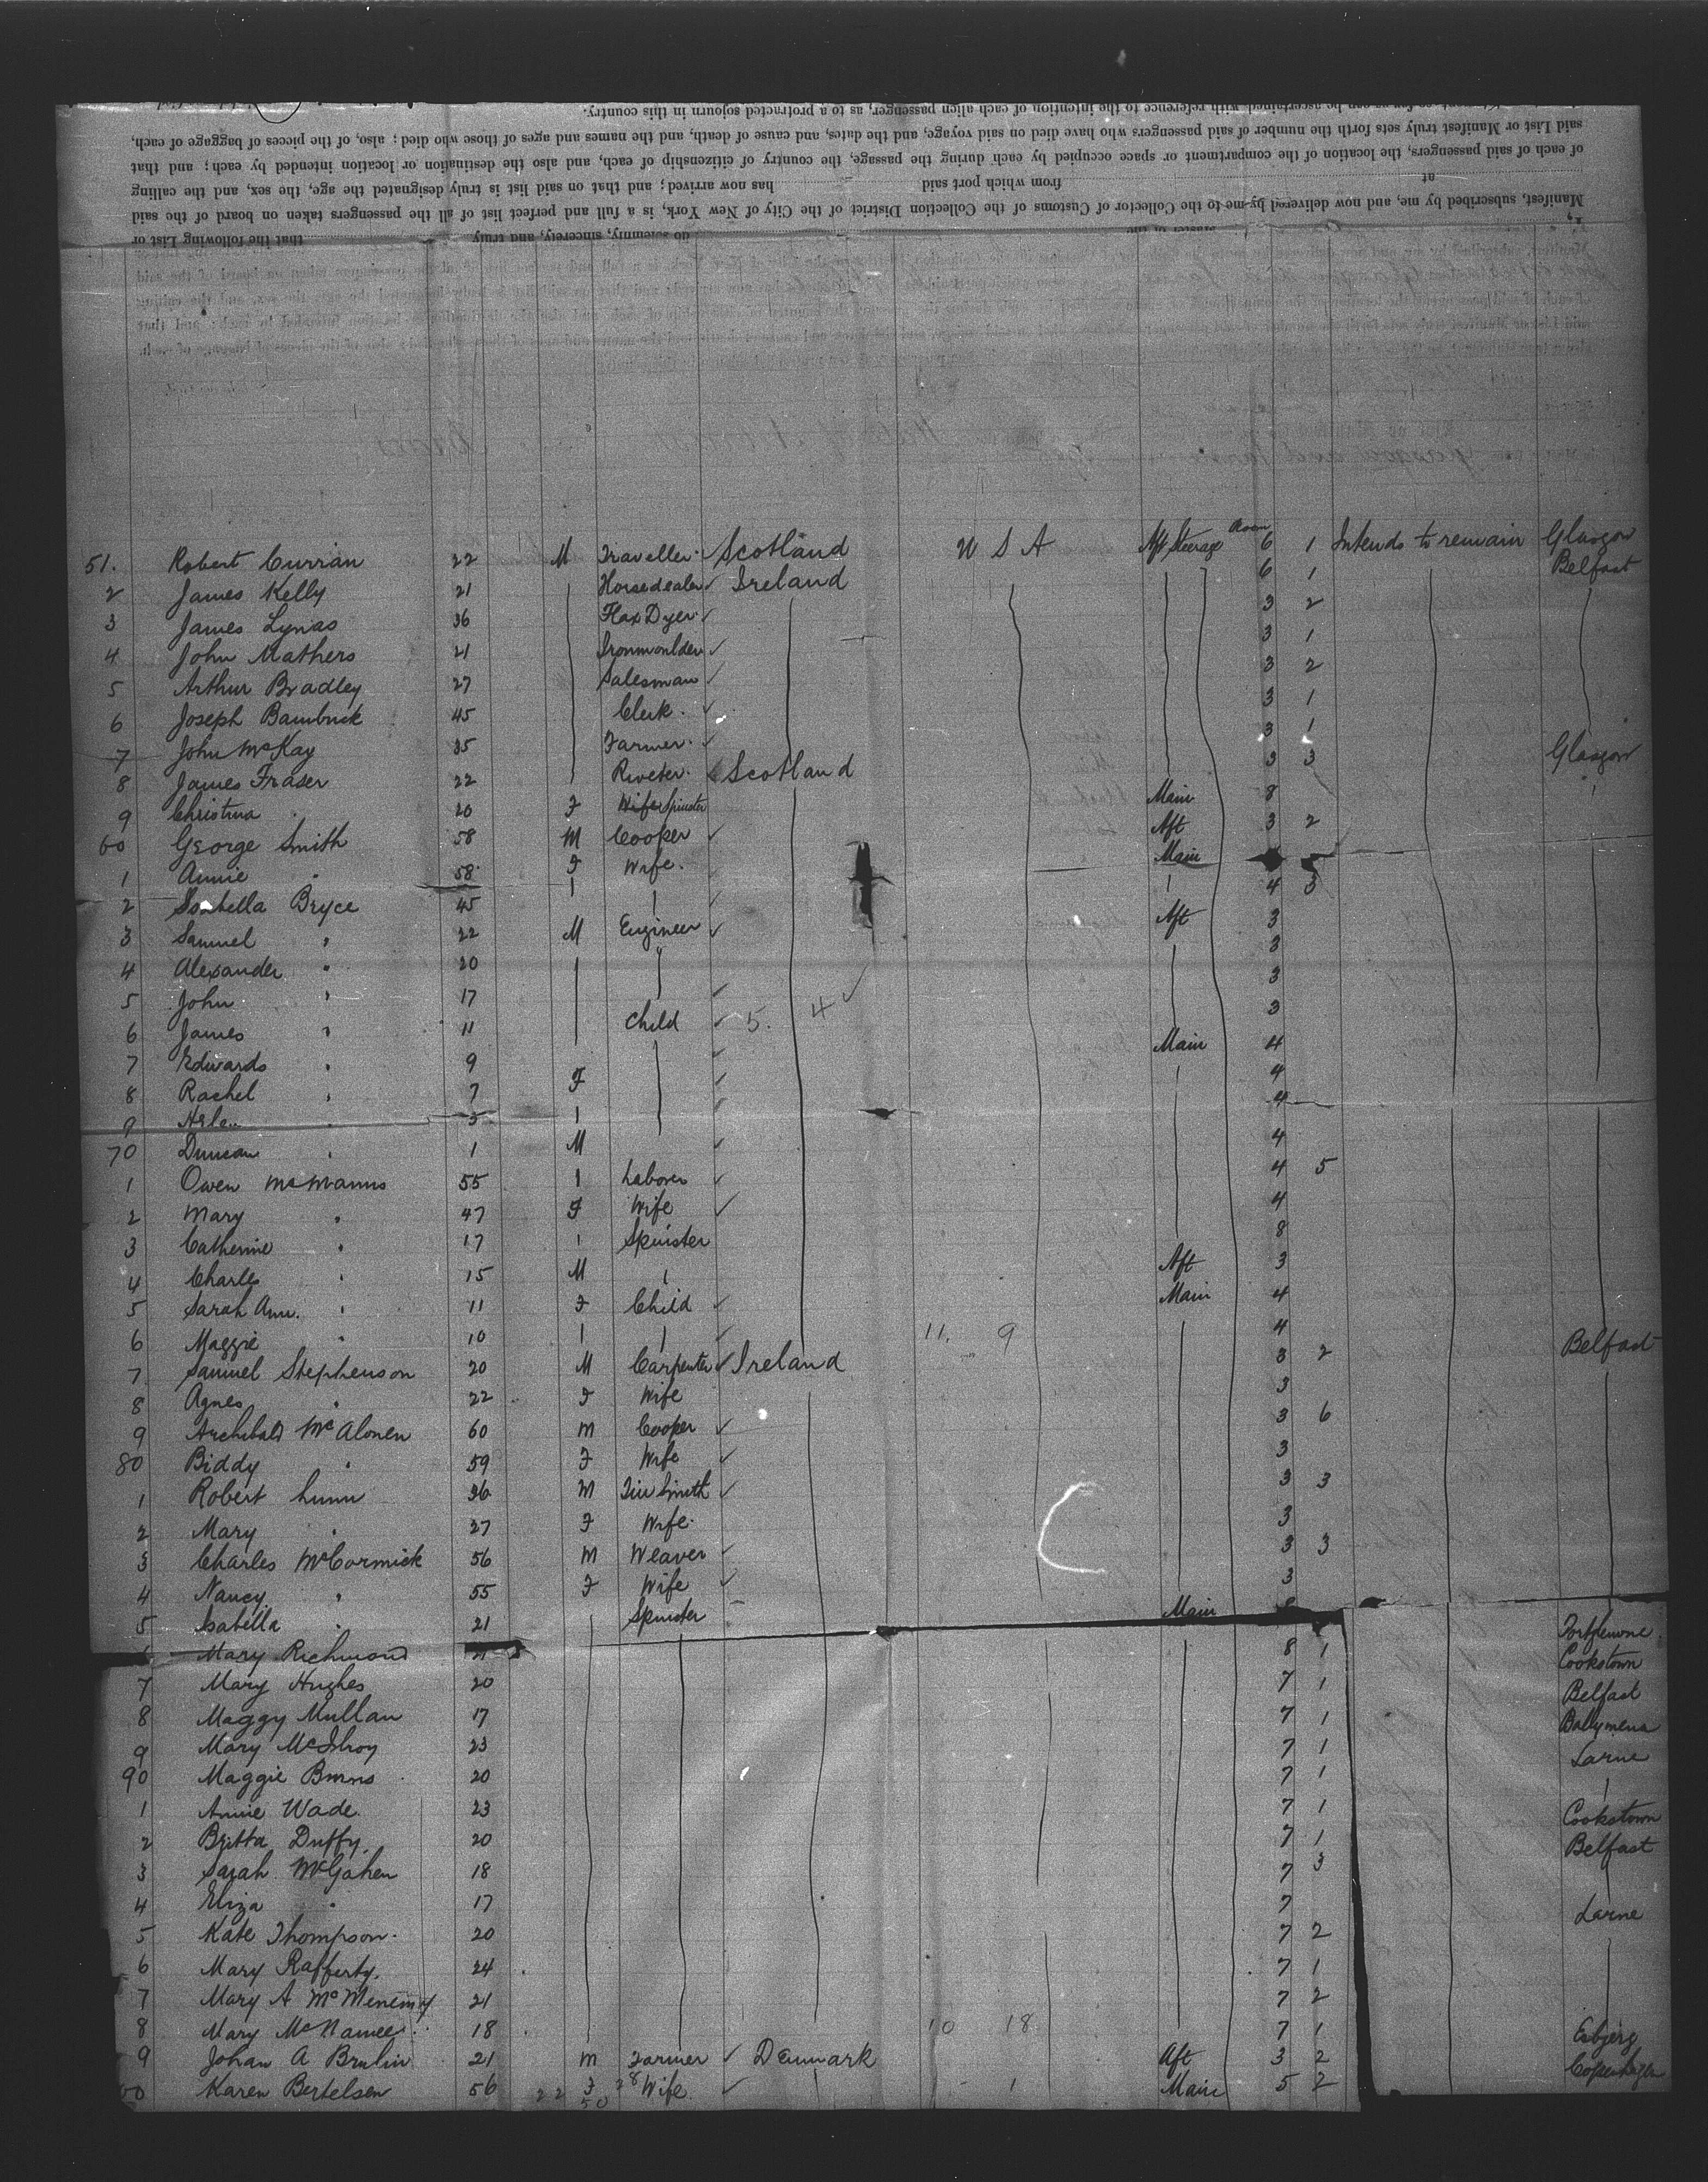 said List or Manifest truly sets forth the number of said passengers who have died on said voyage, and the dates, and cause of death, and the names and ages of those who died; also, of the pieces of baggage of each,
as can be ascertained with reference to the intention of each alien passenger, as to a protracted sojourn in this country.
of each of said passengers, the location of the compartment or space occupied by each during the passage, the country of citizenship of each, and also the destination or location intended by each; and that
at from which port said has now arrived; and that on said list is truly designated the age, the sex, and the calling
Manifest, subscribed by me, and now delivered by me to the Collector of Customs of the Collection District of the City of New York, is a full and perfect list of all the passengers taken on board of the said
Master of the do solemnly, sincerely, and truly that the following List or
51. Robert Curran 22 M Traveller Scotland U S A Aft Steerage Room 6 1 Intends to remain Glasgow
2 James Kelly 21 Horsedealer Ireland 6 1 Belfast
3 James Lynas 36 Flax Dyer 3 2
4 John Mathers 21 Ironmoulder 3 1
5 Arthur Bradley 27 Salesman 3 2
6 Joseph Bambrick 45 Clerk 3 1
7 John McKay 35 Farmer 3 1
8 James Fraser 22 Riveter Scotland 3 3 Glasgow
9 Christina " 20 F Wife Spinster Main 8 "
60 George Smith 58 M Cooper Aft 3 2
1 Annie " 58 F Wife Main
2 Isabella Bryce 45 4 3
3 Samuel " 22 M Engineer Aft 3
4 Alexander " 20 " 3
5 John " 17 3
6 James " 11 Child 5. 4 3
7 Edwards " 9 Main 4
8 Rachel " 7 F 4
9 Helen " 3 4
70 Duncan " 1 M 4
1 Owen McManus 55 Laborer 4 5
2 Mary " 47 F Wife 4
3 Catherine " 17 Spinster 8
4 Charles " 15 M Aft 3
5 Sarah Ann. " 11 F Child Main 4
6 Maggie " 10 11. 9 4
7 Samuel Stephenson 20 M Carpenter Ireland 3 2 Belfast
8 Agnes " 22 F Wife 3
9 Archibald McAlonen 60 M Cooper 3 6
80 Biddy " 59 F Wife 3
1 Robert Lunn 36 M Tin Smith 3 3
2 Mary " 27 F Wife 3
3 Charles McCormick 56 M Weaver 3 3
4 Nancy " 55 F Wife 3
5 Isabella " 21 Spinster Main
6 Mary Richmond 21 8 1 Portglenone
7 Mary Hughes 20 7 1 Cookstown
8 Maggy Mullan 17 7 1 Belfast
9 Mary McIlroy 23 7 1 Ballymena
90 Maggie Burns 20 7 1 Larne
1 Annie Wade 23 7 1
2 Britta Duffy 20 7 1 Cookstown
3 Sarah McGahen 18 7 3 Belfast
4 Eliza " 17 7
5 Kate Thompson 20 7 2 Larne
6 Mary Rafferty 24 7 1
7 Mary A McMenemy 21 7 2
8 Mary McNamee 18 10 18 7 1
9 Johan A Brulin 21 M Farmer Denmark Aft 3 2 Esbjerg
00 Karen Bertelsen 56 22 F 50 28 Wife 1 Main 5 2 Copenhagen